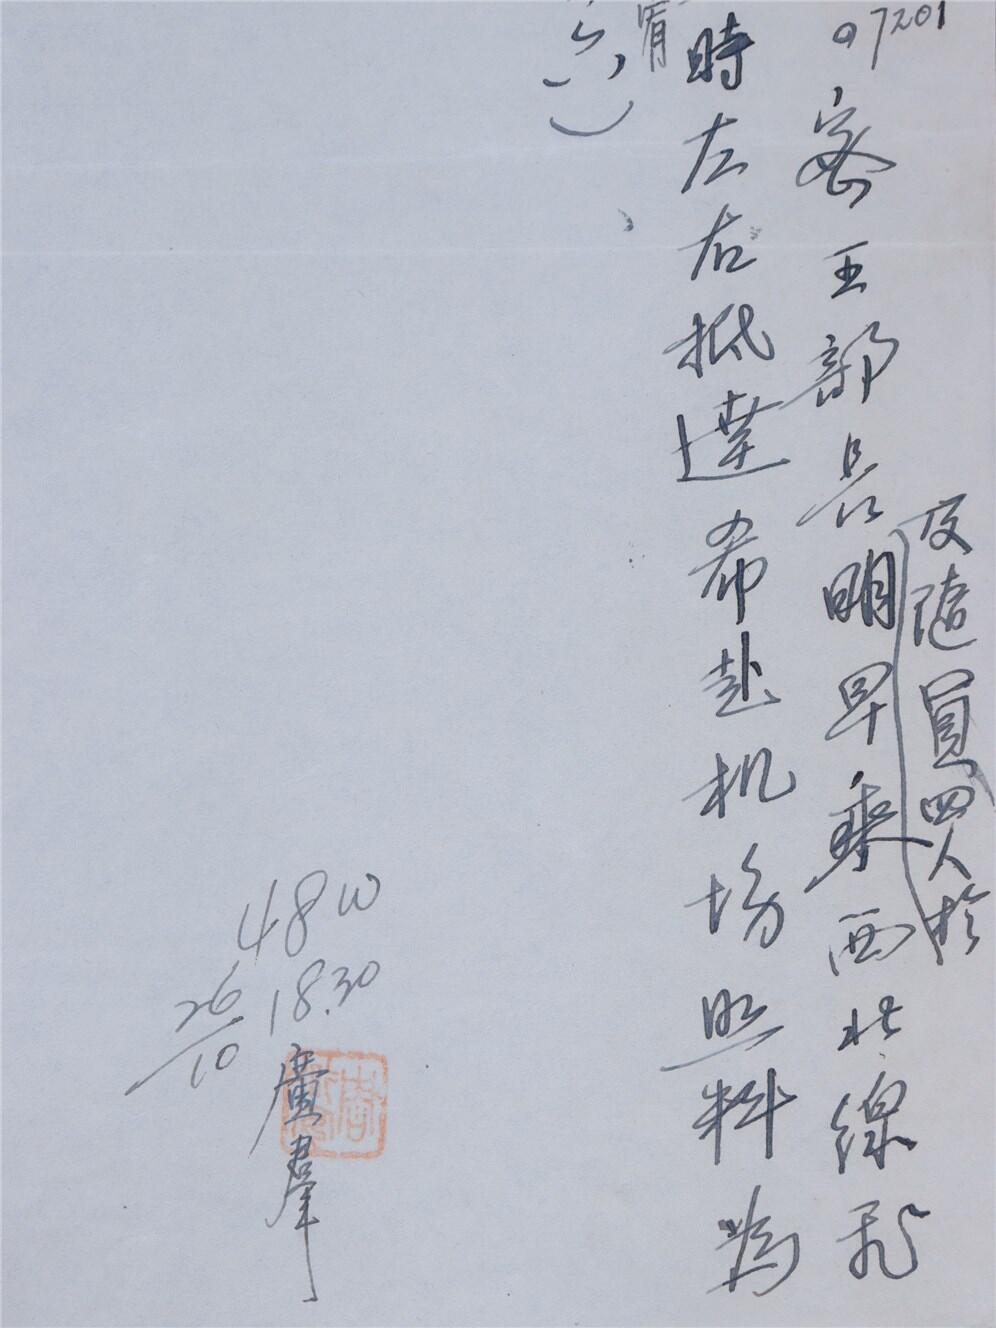 07201
密王部長明早乘西北線飛
及隨員四人於
時左右抵達希赴机場照料為
宥
六）
48W
18.30
26/10
廣羣